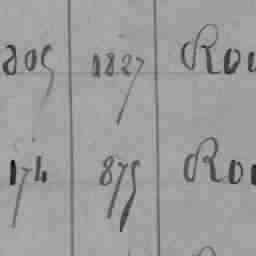 805 1827 Rou
174 875 Rou